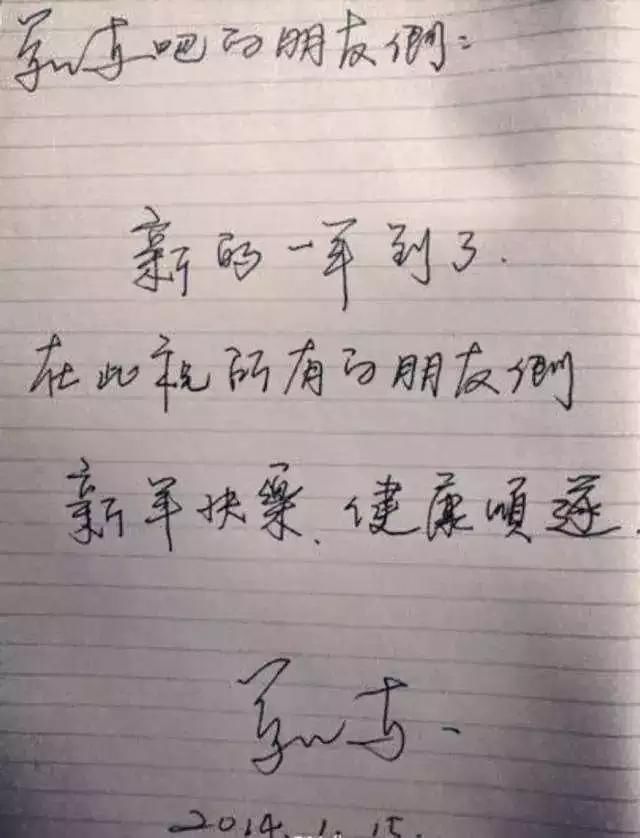 吧的朋友們：
新的一年到了.
在此祝所有的朋友們
新年快樂、健康順遂.
2014.1.15.